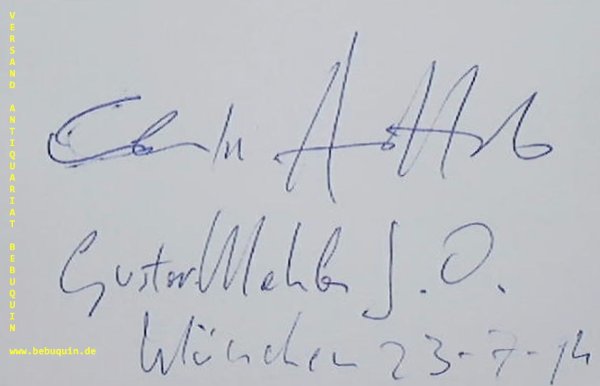 VERSAND ANTIQUARIAT BEBUQUIN
www.bebuquin.de
Gustav Mahler J.O.
München 23-7-14